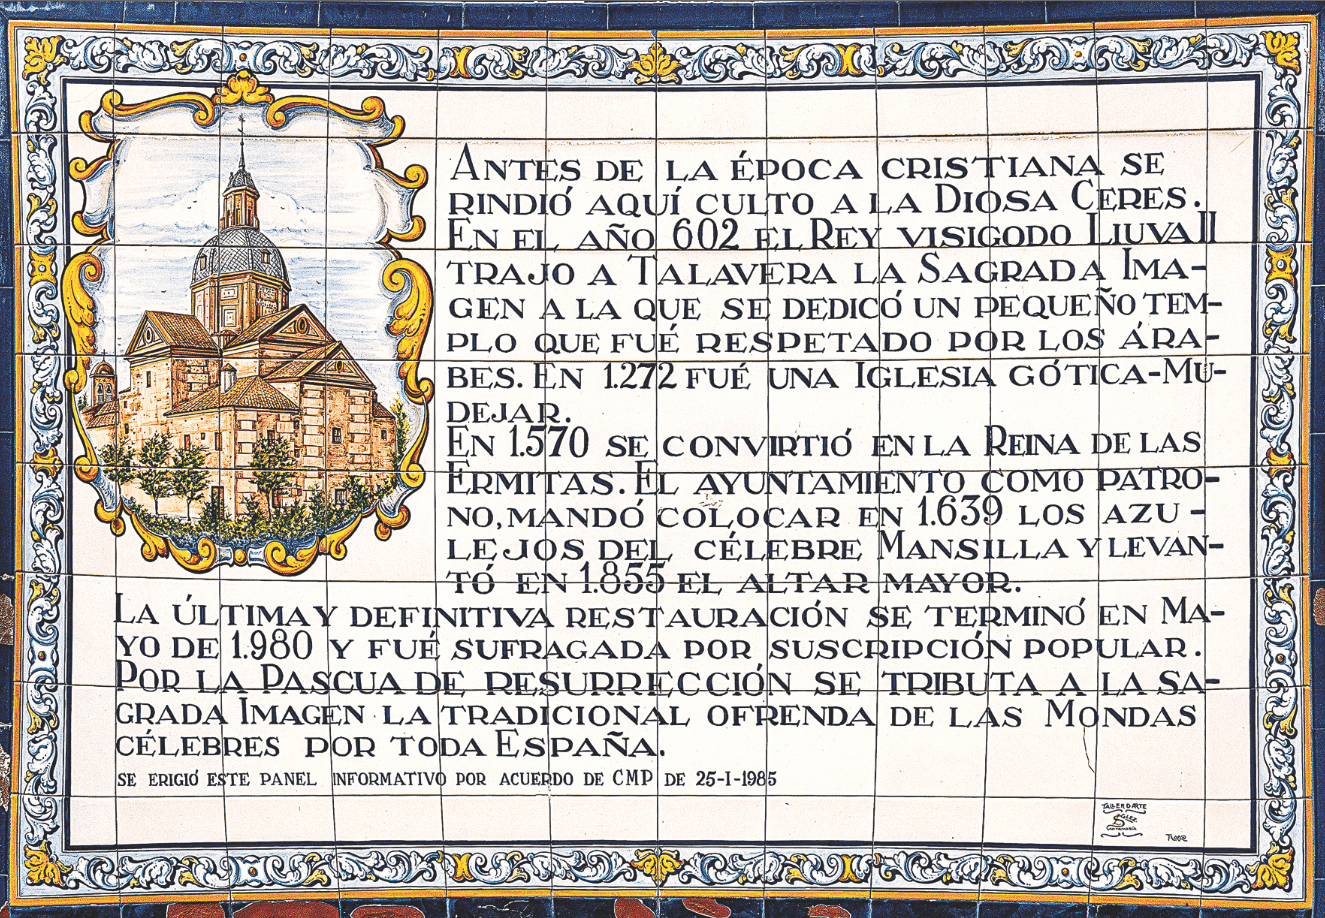 ANTES DE LA ÉPOCA CRISTIANA SE
RINDIÓ AQUÍ CULTO A LA DIOSA CERES.
EN EL AÑO 602 EL REY VISIGODO LIUVA II
TRAJO A TALAVERA LA SAGRADA IMA-
GEN A LA QUE SE DEDICÓ UN PEQUEÑO TEM-
PLO QUE FUÉ RESPETADO POR LOS ÁRA-
BES. EN 1.272 FUÉ UNA IGLESIA GÓTICA-MU-
DEJAR.
EN 1.570 SE CONVIRTIÓ EN LA REINA DE LAS
ERMITAS. EL AYUNTAMIENTO COMO PATRO-
NO, MANDÓ COLOCAR EN 1.639 LOS AZU-
LEJOS DEL CÉLEBRE MANSILLA Y LEVAN-
TÓ EN 1.855 EL ALTAR MAYOR.
LA ÚLTIMA Y DEFINITIVA RESTAURACIÓN SE TERMINÓ EN MA-
YO DE 1.980 Y FUÉ SUFRAGADA POR SUSCRIPCIÓN POPULAR.
POR LA PASCUA DE RESURRECCIÓN SE TRIBUTA A LA SA-
GRADA IMAGEN LA TRADICIONAL OFRENDA DE LAS MONDAS
CÉLEBRES POR TODA ESPAÑA.
SE ERIGIÓ ESTE PANEL INFORMATIVO POR ACUERDO DE CMP DE 25-I-1985